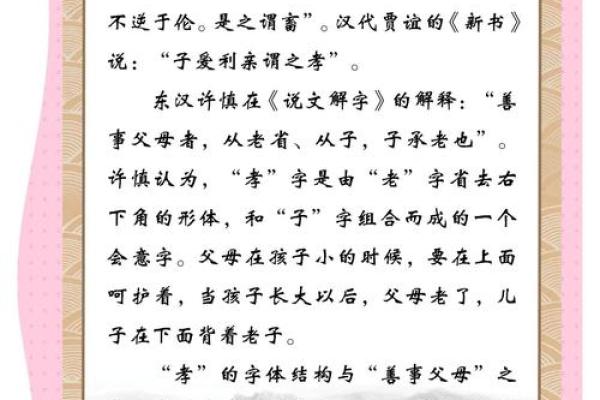 不逆于伦。是之谓畜”。汉代贾谊的《新书》
说：“子爱利亲谓之孝”。
东汉许慎在《说文解字》的解释：“善
事父母者，从老省、从子，子承老也”。
许慎认为，“孝”字是由“老”字省去右
下角的形体，和“子”字组合而成的一个
会意字。父母在孩子小的时候，要在上面
呵护着，当孩子长大以后，父母老了，儿
子在下面背着老子。
“孝”的字体结构与“善事父母”之